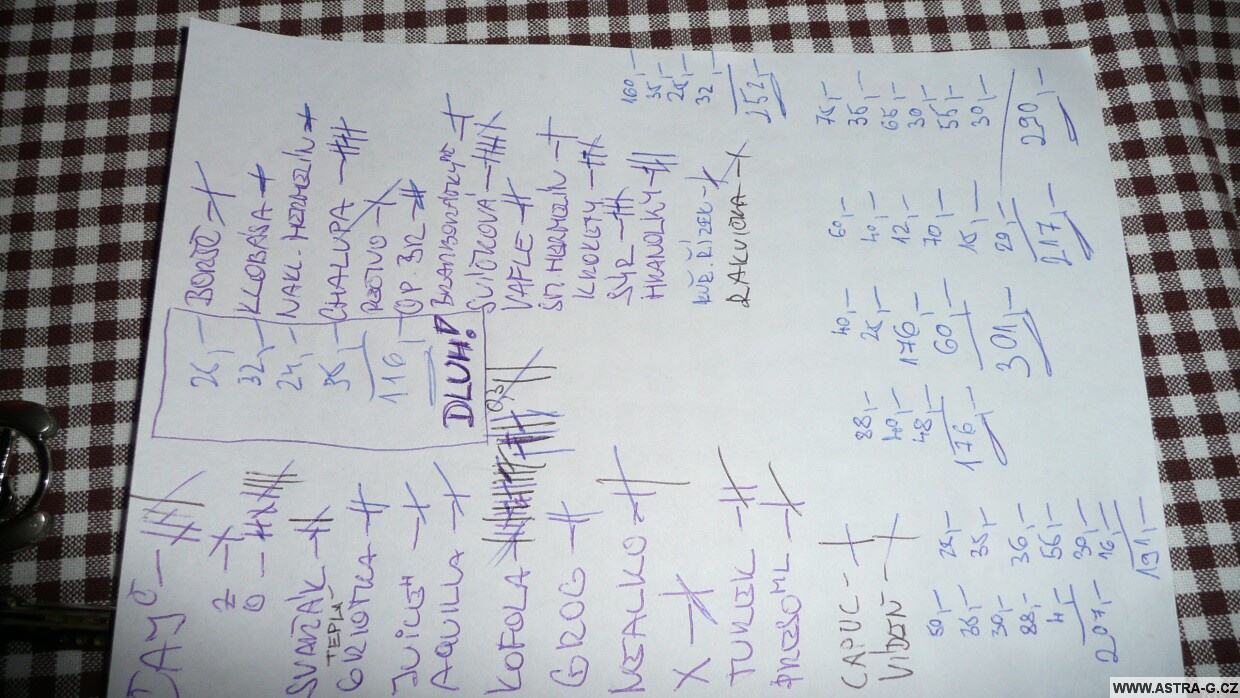 ČAJ
Z
O
SVAŘÁK
TEPLÁ
GRIOTKA
JUICE
AQUILLA
KOFOLA
0,3
GROG
NEALKO
X
TUREK
PRESO
CAPUC.
VÍDEŇ
32,—
24,—
116,—
DLUH!
BORŠČ
KLOBÁSA
NAKL. HERMELÍN
CHALUPA
OP. BR
BRAMBORÁKY
SVÍČKOVÁ
VAFLE
SM. HERMELÍN
KROKETY
SÝR
HRANOLKY
KUŘ. ŘÍZEK
ZAKVIČKA
160,—
35
32,—
252,—
75,—
35,—
65,—
30,—
55,—
30,—
290,—
60,—
40,—
12,—
70,—
15,—
217,—
40,—
25,—
176
60,—
301,—
88,—
40,—
48,—
176,—
50,—
35,—
30,—
88,—
4,—
207,—
25,—
35,—
36,—
56,—
30,—
16,—
191,—
WWW.ASTRA-G.CZ